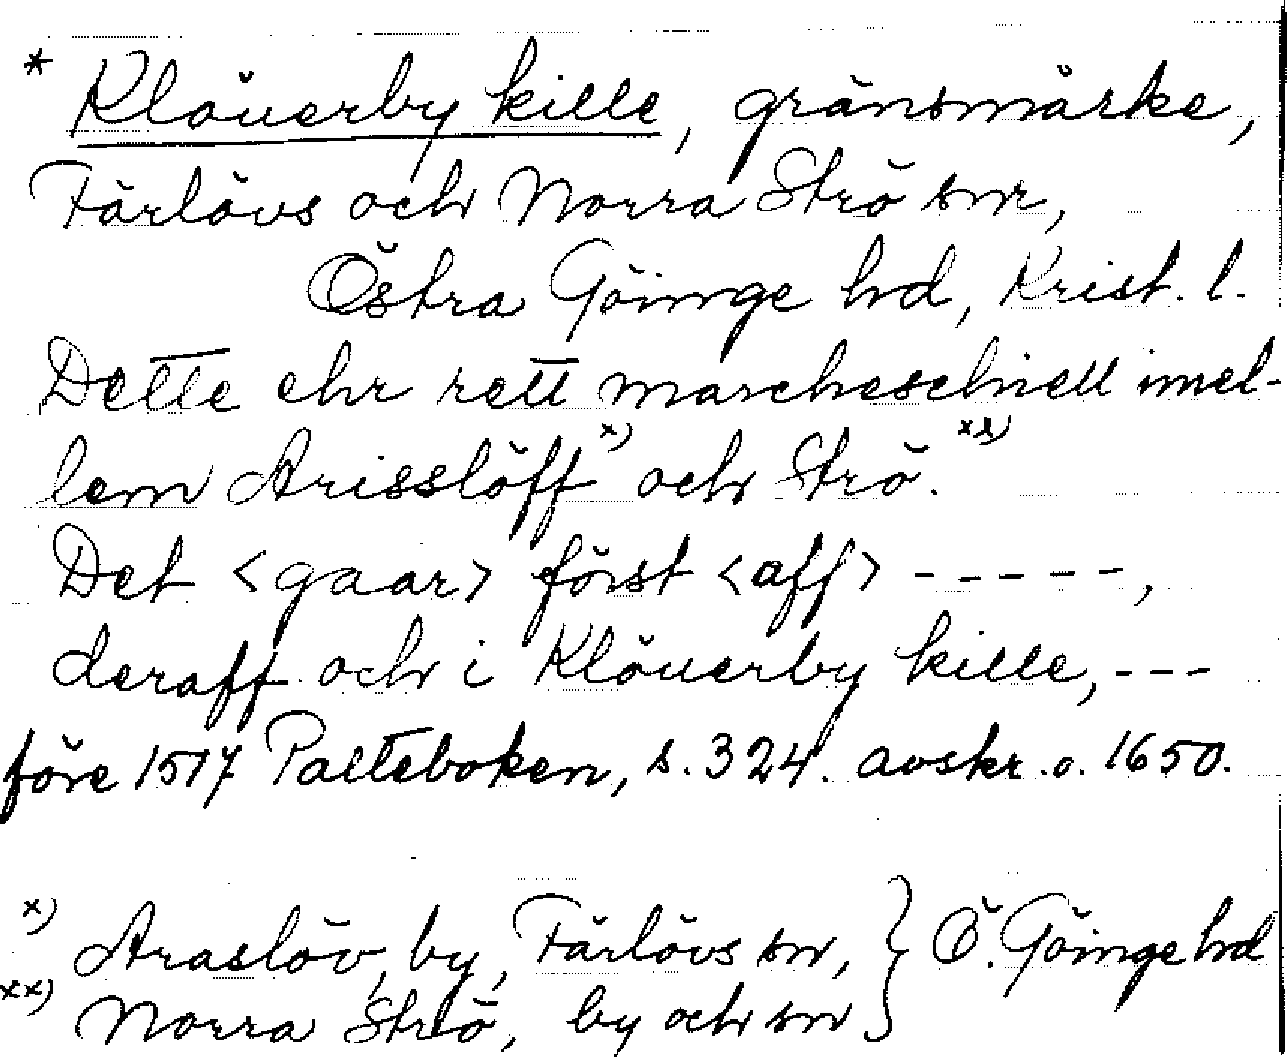 * Klöuerby kille, gränsmärke,
Färlövs och Norra Strö snr,
Östra Göinge hd, Krist. l.
Dette ehr rett marcheschiell imel-
lem Arisslöff x) och Strö. xx)
Det <gaar> först <aff> - - - - -,
deraff och i Klöuerby kille, - - -
före 1517 Palteboken, s. 324. avskr. o. 1650.
x) Araslöv, by, Färlövs sn, } Ö. Göinge hd
xx) Norra Strö, by och sn